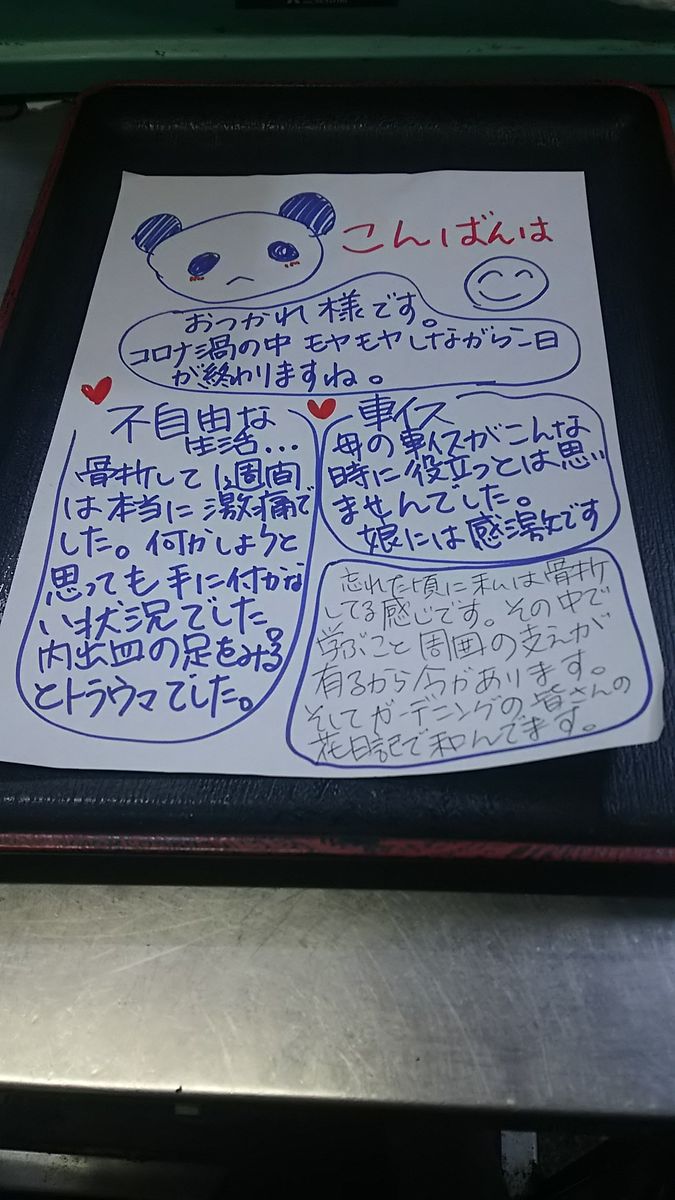 こんばんは
おつかれ様です。
コロナ渦の中 モヤモヤしながら一日
が終わりますね。
不自由な
生活...
骨折して1週間
は本当に激痛で
した。何かしようと
思っても手に付かな
い状況でした。
内出血の足をみる
とトラウマでした。
車イス
母の車イスがこんな
時に役立つとは思い
ませんでした。
娘には感激です
忘れた頃に私は骨折
してる感じです。その中で
学ぶこと周囲の支えが
有るから今があります。
そしてガーデニングの皆さんの
花日記で和んでます。